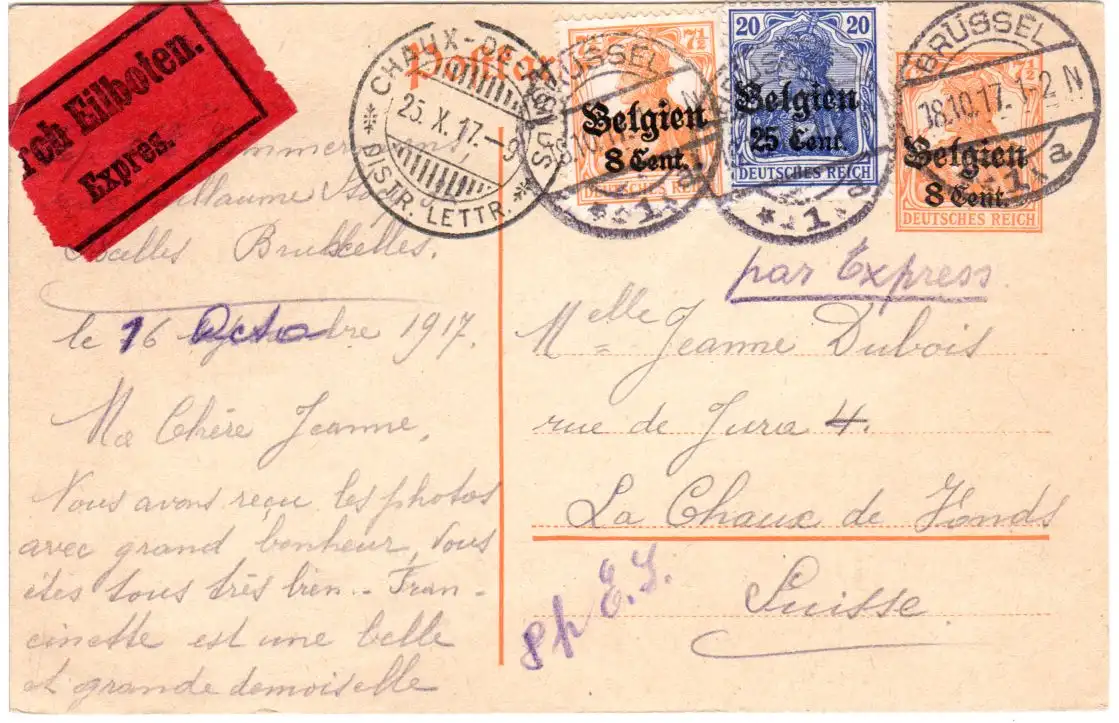 rch Eilboten.
Exprès.
Postkar
CHAUX-DE-FONDS
25. X. 17.–9
DISTR. LETTR.
7½
Belgien
8 Cent.
DEUTSCHES REICH
20 20
Belgien
25 Cent.
DEUTSCHES REICH
7½ 7½
Belgien
8 Cent.
DEUTSCHES REICH
BRÜSSEL
BRÜSSEL
BRÜSSEL
18.10.17. 1-2 N
1
1
1 a
Bruxelles.
le 16 Octobre 1917.
Ma Chère Jeanne,
Vous avons reçu les photos
avec grand bonheur, Vous
êtes tous très bien.. Fran-
cinette est une belle
et grande demoiselle
par Express
Melle Jeanne Dubois
rue de Jura 4.
La Chaux de Fonds
Suisse